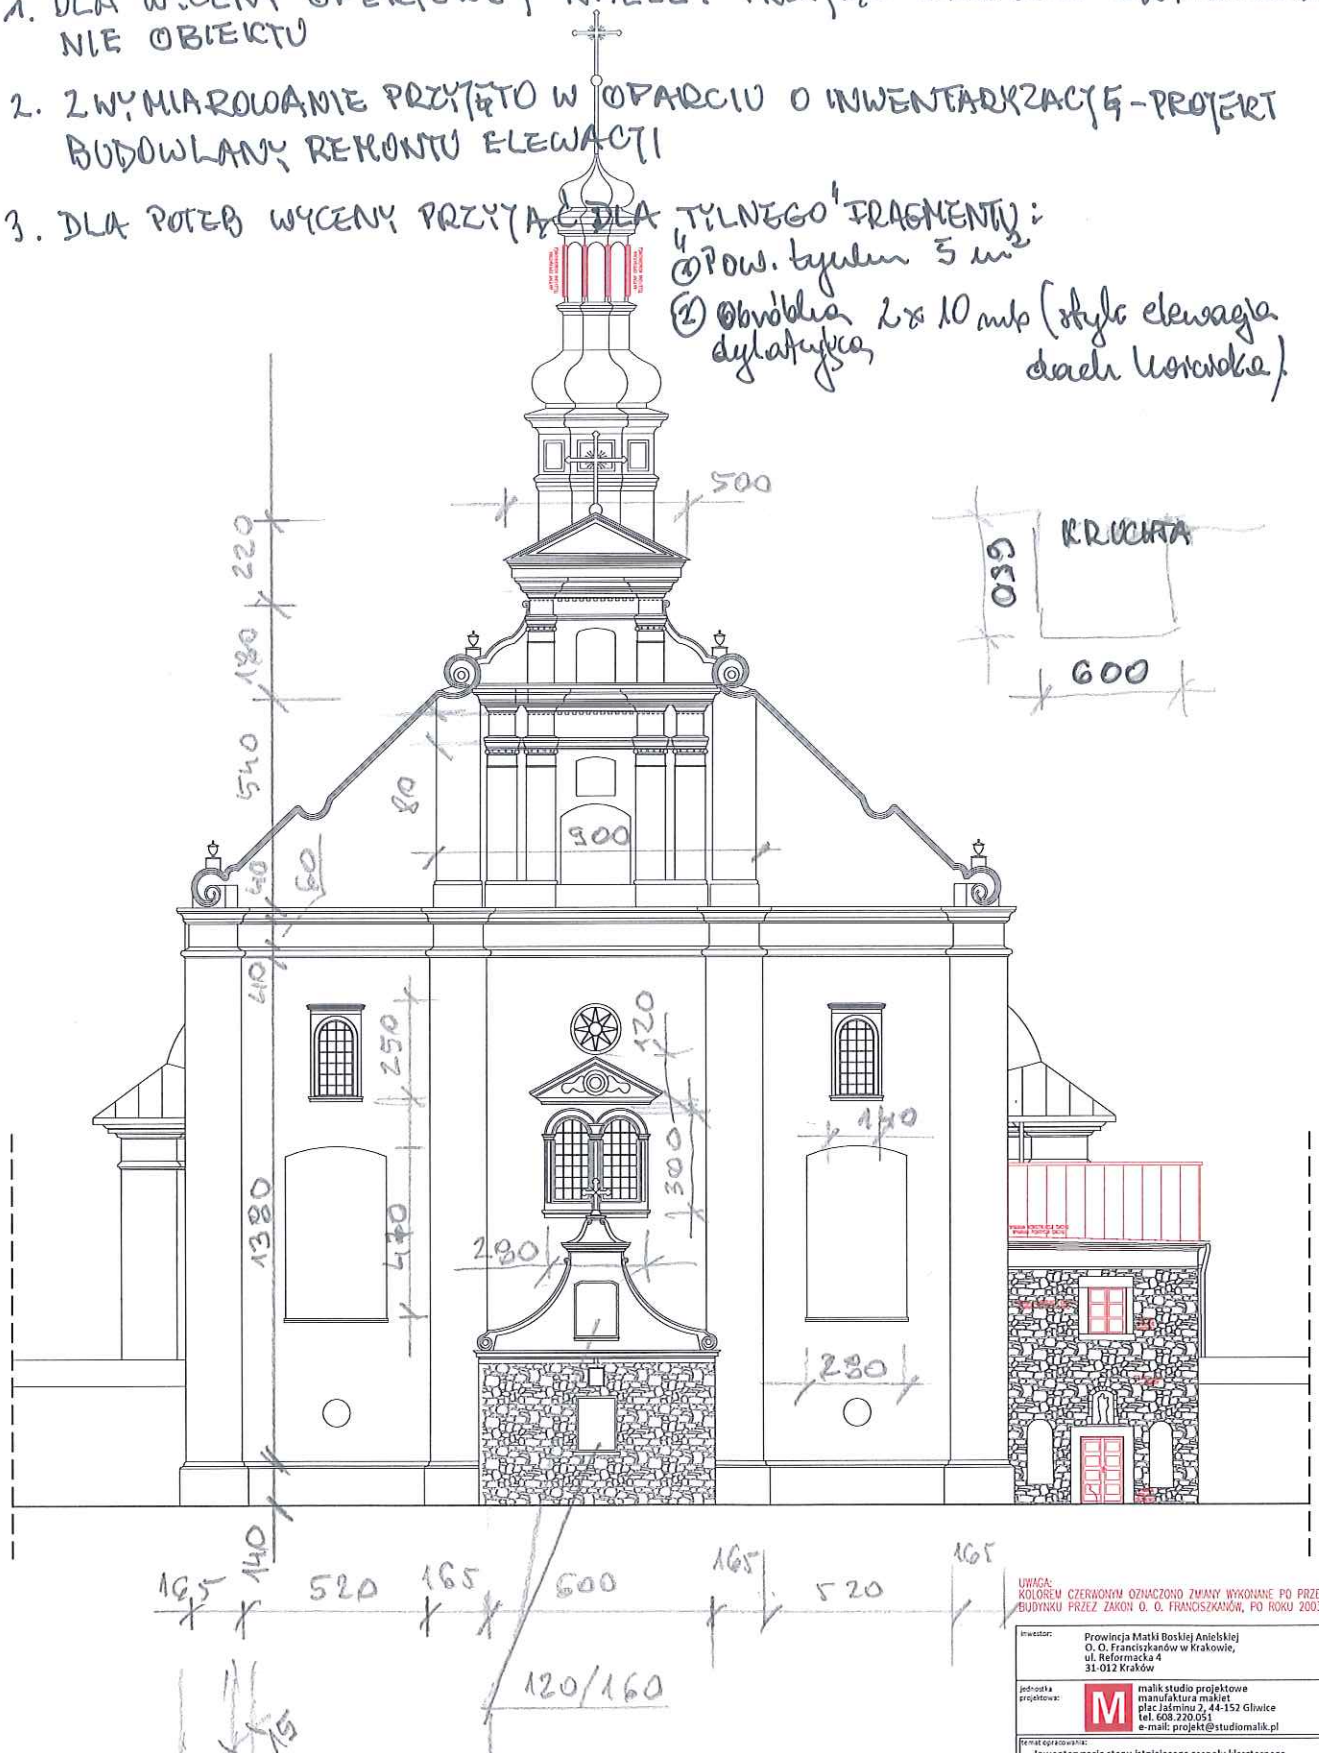 1. DLA WYCENY
NIE OBIEKTU
2. ZWYMIAROWANIE PRZYJĘTO W OPARCIU O INWENTARYZACJĘ - PROJEKT
BUDOWLANY REMONTU ELEWACJI
3. DLA POTEB WYCENY PRZYJĄĆ DLA „TYLNEGO" FRAGMENTU:
① Pow. tynków 5 m²
② Obróbka 2x10 mb (styk elewacja
dylatująca dach kościoła)
500
220
KRUCHTA
630
180
600
540
80
900
40
60
40
120
250
140
300
1380
470
290
290
140
165
520
165
600
165
520
165
120/160
15
UWAGA:
KOLOREM CZERWONYM OZNACZONO ZMIANY WYKONANE PO PRZE
BUDYNKU PRZEZ ZAKON O. O. FRANCISZKANÓW, PO ROKU 2003
inwestor:
Prowincja Matki Boskiej Anielskiej
O. O. Franciszkanów w Krakowie,
ul. Reformacka 4
31-012 Kraków
jednostka
projektowa:
M
malik studio projektowe
manufaktura makiet
plac Jaśminu 2, 44-152 Gliwice
tel. 608.220.051
e-mail: projekt@studiomalik.pl
temat opracowania: